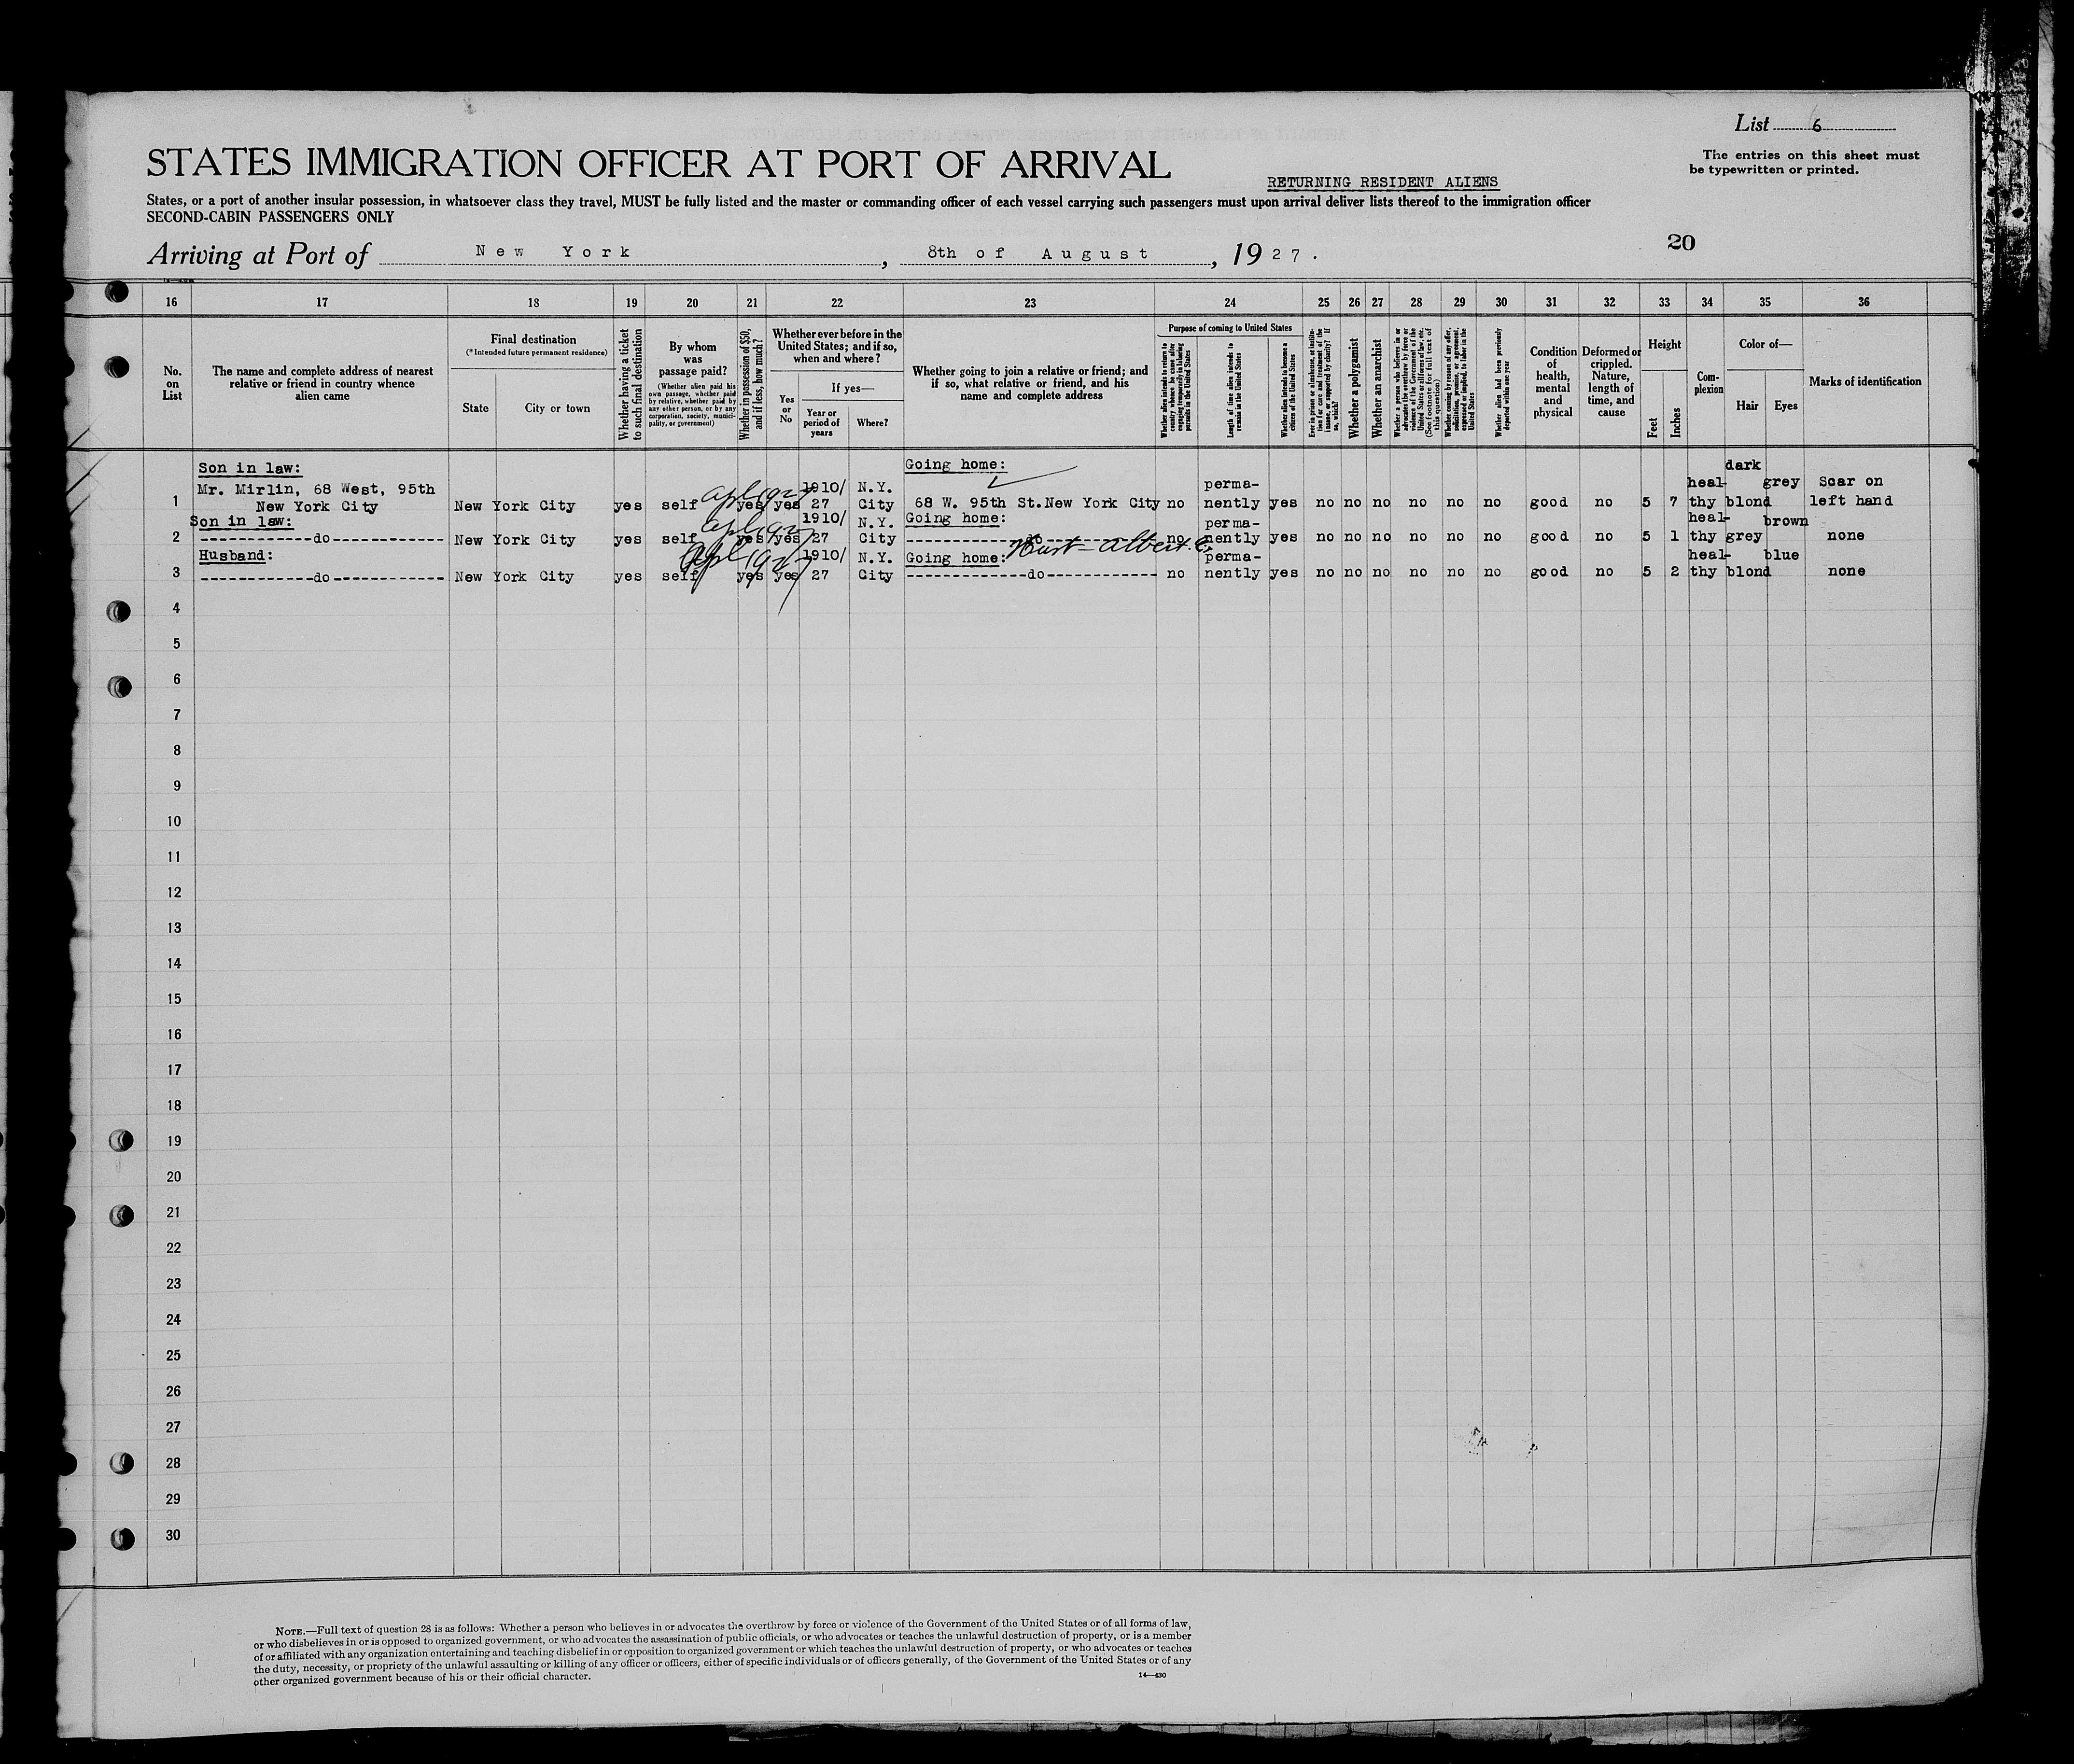 List 6
STATES IMMIGRATION OFFICER AT PORT OF ARRIVAL
The entries on this sheet must
be typewritten or printed.
RETURNING RESIDENT ALIENS
States, or a port of another insular possession, in whatsoever class they travel, MUST be fully listed and the master or commanding officer of each vessel carrying such passengers must upon arrival deliver lists thereof to the immigration officer
SECOND-CABIN PASSENGERS ONLY
20
Arriving at Port of New York, 8th of August, 1927.
16 17 18 19 20 21 22 23 24 25 26 27 28 29 30 31 32 33 34 35 36
No. on List
The name and complete address of nearest relative or friend in country whence alien came
Final destination
(*Intended future permanent residence)
State
City or town
Whether having a ticket to such final destination
By whom was passage paid?
(Whether alien paid his own passage, whether paid by relative, whether paid by any other person, or by any corporation, society, municipality, or government)
Whether in possession of $50, and if less, how much?
Whether ever before in the United States; and if so, when and where?
Yes or No
If yes—
Year or period of years
Where?
Whether going to join a relative or friend; and if so, what relative or friend, and his name and complete address
Purpose of coming to United States
Whether alien intends to return to country whence he came after engaging temporarily in laboring pursuits in the United States
Length of time alien intends to remain in the United States
Whether alien intends to become a citizen of the United States
Ever in prison or almshouse, or institution for care and treatment of the insane, or supported by charity? If so, which?
Whether a polygamist
Whether an anarchist
Whether a person who believes in or advocates the overthrow by force or violence of the Government of the United States or all forms of law, etc. (See footnote for full text of this question)
Whether coming by reason of any offer, solicitation, promise, or agreement, expressed or implied, to labor in the United States
Whether alien had been previously deported within one year
Condition of health, mental and physical
Deformed or crippled. Nature, length of time, and cause
Height
Feet
Inches
Complexion
Color of—
Hair
Eyes
Marks of identification
Son in law: Going home: dark
Mr. Mirlin, 68 West, 95th apl 1927 1910/ N.Y. perma- heal- grey Scar on
1 New York City New York City yes self yes yes 27 City 68 W. 95th St.New York City no nently yes no no no no no no good no 5 7 thy blond left hand
Son in law: apl 1927 1910/ N.Y. Going home: perma- heal- brown
2 ------------do------------ New York City yes self yes yes 27 City ------------do------------ no nently yes no no no no no no good no 5 1 thy grey none
Husband: apl 1927 1910/ N.Y. Going home: Hust - Albert perma- heal- blue
3 ------------do------------ New York City yes self yes yes 27 City ------------do------------ no nently yes no no no no no no good no 5 2 thy blond none
4
5
6
7
8
9
10
11
12
13
14
15
16
17
18
19
20
21
22
23
24
25
26
27
28
29
30
NOTE.—Full text of question 28 is as follows: Whether a person who believes in or advocates the overthrow by force or violence of the Government of the United States or of all forms of law,
or who disbelieves in or is opposed to organized government, or who advocates the assassination of public officials, or who advocates or teaches the unlawful destruction of property, or is a member
of or affiliated with any organization entertaining and teaching disbelief in or opposition to organized government or which teaches the unlawful destruction of property, or who advocates or teaches
the duty, necessity, or propriety of the unlawful assaulting or killing of any officer or officers, either of specific individuals or of officers generally, of the Government of the United States or of any
other organized government because of his or their official character.
14—430